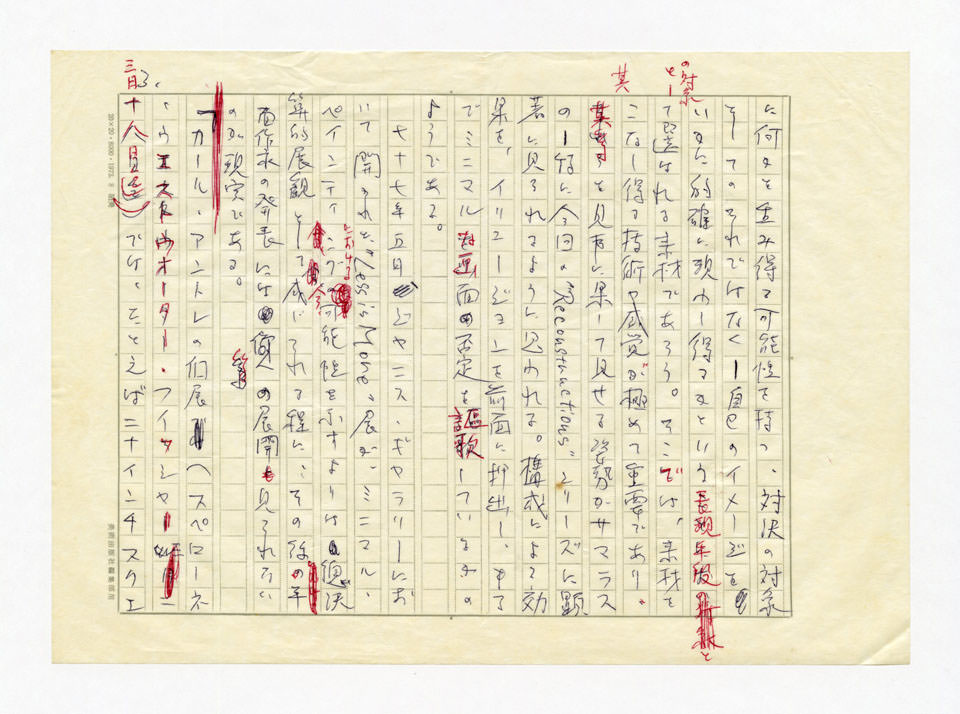 に何かを生み得る可能性を持つ、対決の対象
としてのそれではなく、自己のイメージを
いかに的確に現わし得るかという
の対象
として選ばれる素材であろう。そこでは、素材を
こなし得る技術や感覚が極めて重要であり、
其
見方に果して見せる姿勢がサマラス
の一行に今回の"Reconstructions"シリーズに顕
著に見られるように思われる。構成によって効
果を、イリュージョンを前面に押出し、
でミニマル 画面の否定を謳歌しているかの
ようである。
七十七年五月 ジャニス・ギャラリーにお
いて開かれた"Less is More"展が、ミニマル・
ペインティングにおける可能性を示すよりは、総決
算的展観として感じられる程に、その後の平
面作家の発表には 個々の展開も見られない
のが現実である。
「カール・アンドレの個展 (ヘスペローネ
・ウエストウォーター・フィッシャー
三月
十八日迄)では、たとえば二十インチスクエ
20×20
美術出版社編集部用